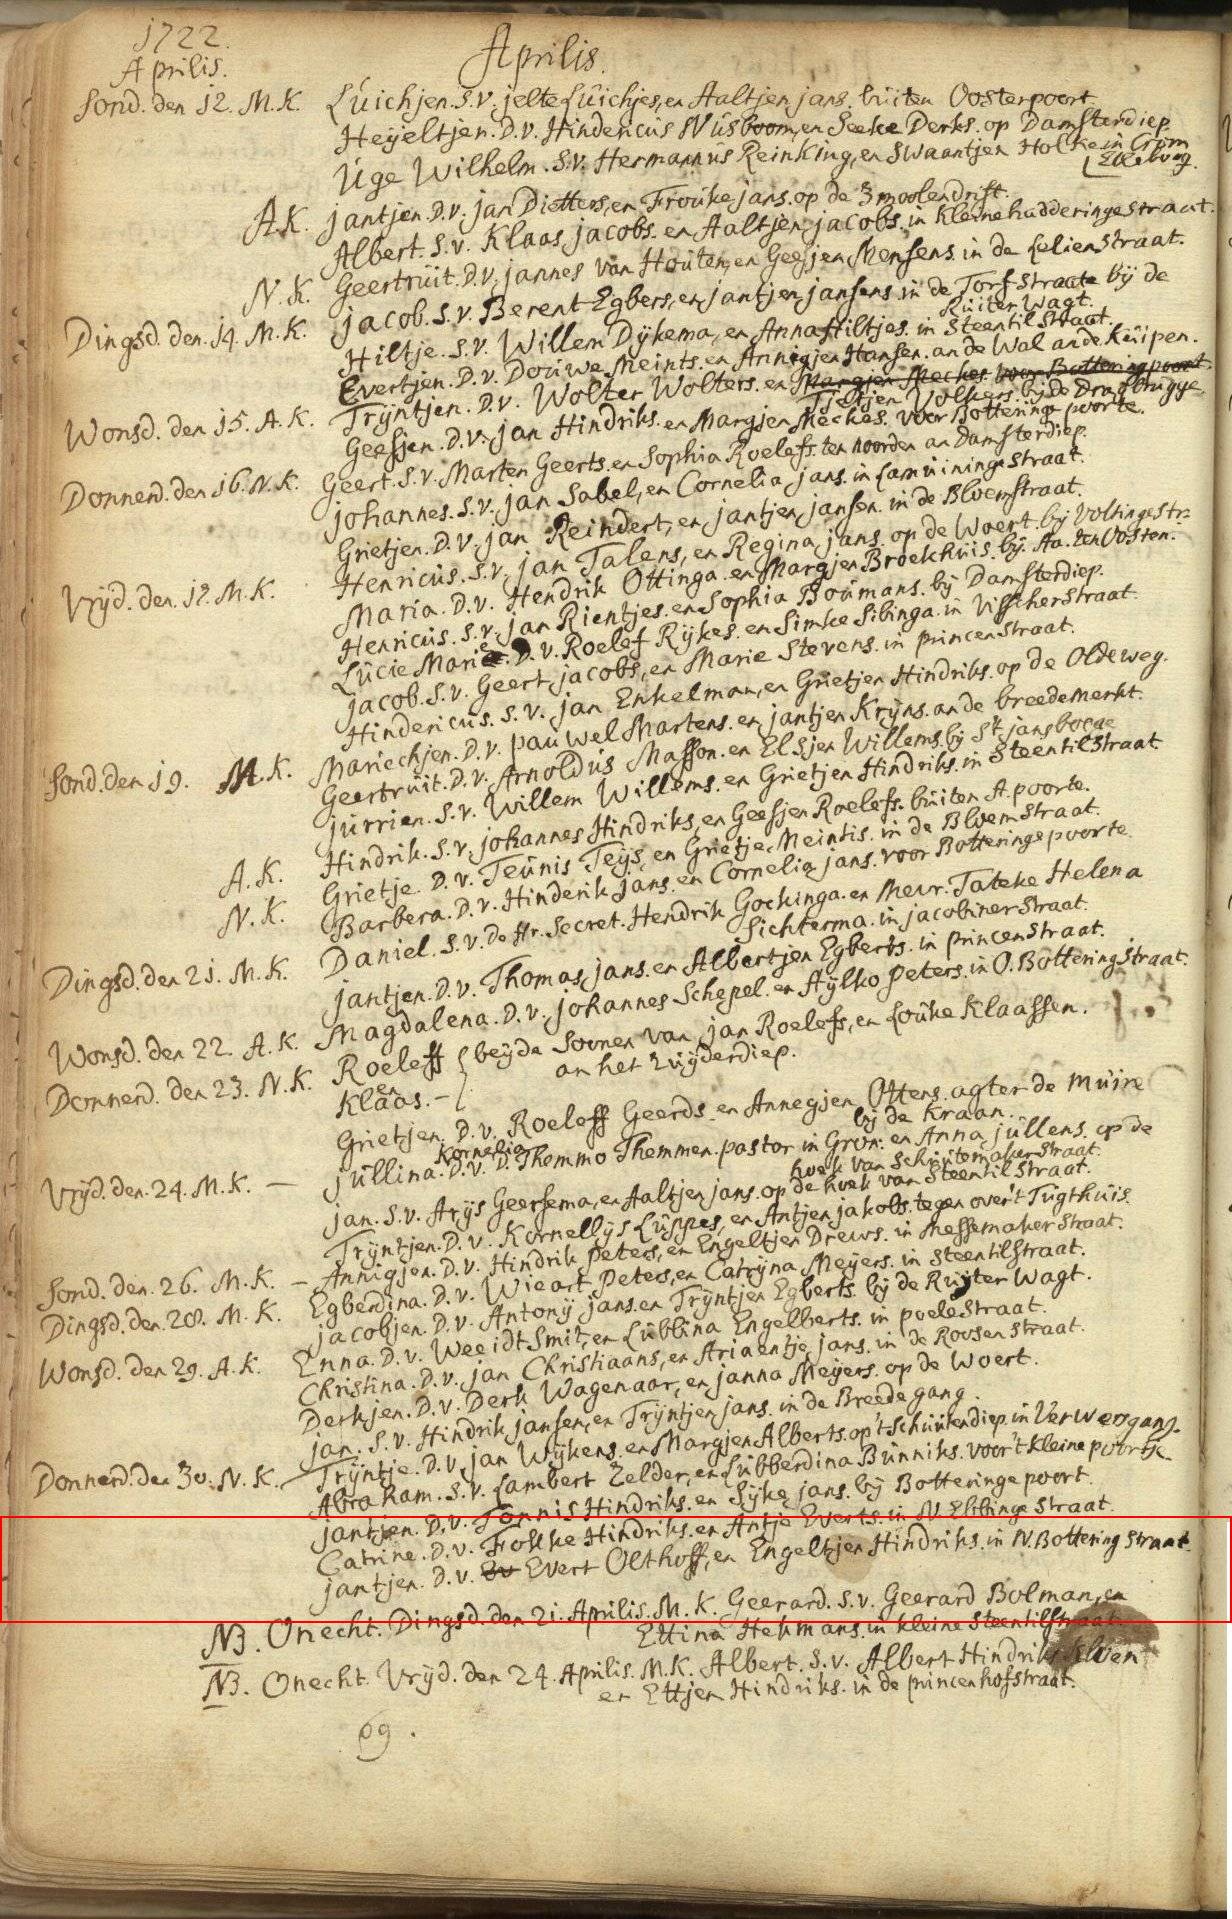 1722.
Aprilis.
Aprilis.
Sond. den 12. M. K. Luichjen. S. v. jelte Luichjes, en Aaltjen jans. buiten Oosterpoort.
Heyeltjen. D. v. Hindericus Nusboom, en Seeke Derks. op Damsterdiep.
Uge Wilhelm. S. v. Hermannus Reinking, en Swaantjen Holt in Crom
Elleboog.
A. K. jantjen. D. v. jan Dietters, en Frouke jans. op de 3 moolendrift.
Albert. S. v. Klaas jacobs. en Aaltjen jacobs. in kleine hudderingestraat.
N. K. Geertruit. D. v. jannes van Houten, en Geesjen Mensens. in de Lelienstraat.
jacob. S. v. Berent Egbers, en jantjen jansens in de Torfstraate bij de
Ruiter Wagt.
Dingsd. den. 14. M. K. Hiltje. S. v. Willem Dykema, en Anna Hiltjes. in Steentilstraat.
Evertjen. D. v. Douwe Meints. en Annigjen Hansen. an de Wal an de Kuipen.
Trijntjen. D. v. Wolter Wolters. en Margjen Meckes. voor Botteringepoort.
Tjeltjen Volkers. bij de Draybrugge
Wonsd. den 15. A. K. Geesjen. D. v. jan Hindriks. en Margjen Meckes. voor Botteringe poorte.
Geert. S. v. Marten Geerts. en Sophia Roelefs. ten noorden an Damsterdiep.
Donnerd. den 16. N. K. johannes. S. v. jan Sabel, en Cornelia jans. in Lamuiningestraat.
Grietjen. D. v. jan Reindert, en jantjen jansen. in de Bloemstraat.
Henricus. S. v. jan Talens, en Regina jans. op de Woert. bij Voltingestr:
Maria. D. v. Hendrik Ottinga. en Margjen Broekhuis. bij Aa. ten Oosten.
Vrijd. den. 17. M. K. Henricus. S. v. jan Rientjes. en Sophia Boumans. bij Damsterdiep.
Lucie Marie. D. v. Roelef Rijkes. en Simke Sibinga. in Visscherstraat.
jacob. S. v. Geert jacobs, en Marie Stevens. in princenstraat.
Hindericus. S. v. jan Enkelman, en Grietjen Hindriks. op de Oldeweg.
Sond. den 19. M. K. Mariechjen. D. v. pauwel Martens. en jantjen Krijns. an de breedemerkt.
Geertruit. D. v. Arnoldus Masson. en Elsjen Willems. bij St. jansboege
jurrien. S. v. Willem Willems. en Grietjen Hindriks. in Steentilstraat.
Hindrik. S. v. johannes Hindriks, en Geesjen Roelefs. buiten A. poorte.
A. K. Grietje. D. v. Teunis Teijs, en Grietje Meintis. in de Bloemstraat.
N. K. Barbera. D. v. Hinderik jans. en Cornelia jans. voor Botteringe poorte.
Daniel. S. v. De Hr. Secret. Hendrik Gockinga. en Mevr. Tateke Helena
Sichterma. in jacobinerstraat.
Dingsd. den 21. M. K. jantjen. D. v. Thomas jans. en Albertjen Egberts. in princenstraat.
Magdalena. D. v. johannes Schepel. en Aijlko peters. in O. Botteringstraat.
Wonsd. den 22. A. K. Roeleff beijde Soonen van jan Roelefs, en Louke Klaassen.
en an het Zuijderdiep.
Donnerd. den 23. N. K. Klaas.
Grietjen. D. v. Roeleff Geerds. en Annegjen Ottens. agter de muire
bij de Kraan.
Kornelia
Vrijd. den. 24. M. K. – jullina. D. v. D. Themmo Themmen. pastor in Gron: en Anna jullens. op de
hoek van Schuitemakerstraat.
jan. S. v. Arijs Geersema, en Aaltjen jans. op de hoek van Steentilstraat.
Trijntjen. D. v. Kornellijs Luppes, en Antjen jakobs. tegen over't Tugthuis.
Annigjen. D. v. Hindrik peters, en Engeltjen Drews. in Messemakerstraat.
Sond. den. 26. M. K. – Egberdina. D. v. Wieart peters, en Catrijna Meijers. in Steentilstraat.
Dingsd. den. 28. M. K. jacobjen. D. v. Antonij jans. en Trijntjen Egberts. bij de Ruijter Wagt.
Enna. D. v. Weeidt Smit, en Lubbina Engelberts. in poelestraat.
Wonsd. den 29. A. K. Christina. D. v. jan Christiaans, en Ariaentje jans. in de Roosenstraat.
Derkjen. D. v. Derk Wagenaar, en janna Meijers. op de Woert.
jan. S. v. Hindrik jansen, en Trijntjen jans. in de Breede gang.
Trijntje. D. v. jan Wijkens. en Margjen Alberts. op't Schuitendiep. in Verwersgang.
Donnerd. den 30. N. K. Abraham. S. v. Lambert Zelder, en Lubberdina Bunniks. voor't kleine poortje.
jantjen. D. v. Tonnis Hindriks. en Sijke jans. bij Botteringe poort.
Catrine. D. v. Fokke Hindriks. en Antje Everts. in N. Ebbinge Straat.
jantjen. D. v. Ev Evert Olthoff, en Engeltjen Hindriks. in N. Bottering Straat.
NB. Onecht. Dingsd. den 21. Aprilis. M. K. Geerard. S. v. Geerard Bolman, en
Ettina Hekmans. in kleine Steentilstraat.
NB. Onecht Vrijd. den 24. Aprilis. M. K. Albert. S. v. Albert Hindriks
en Ettjen Hindriks. in de princenhofstraat.
69.